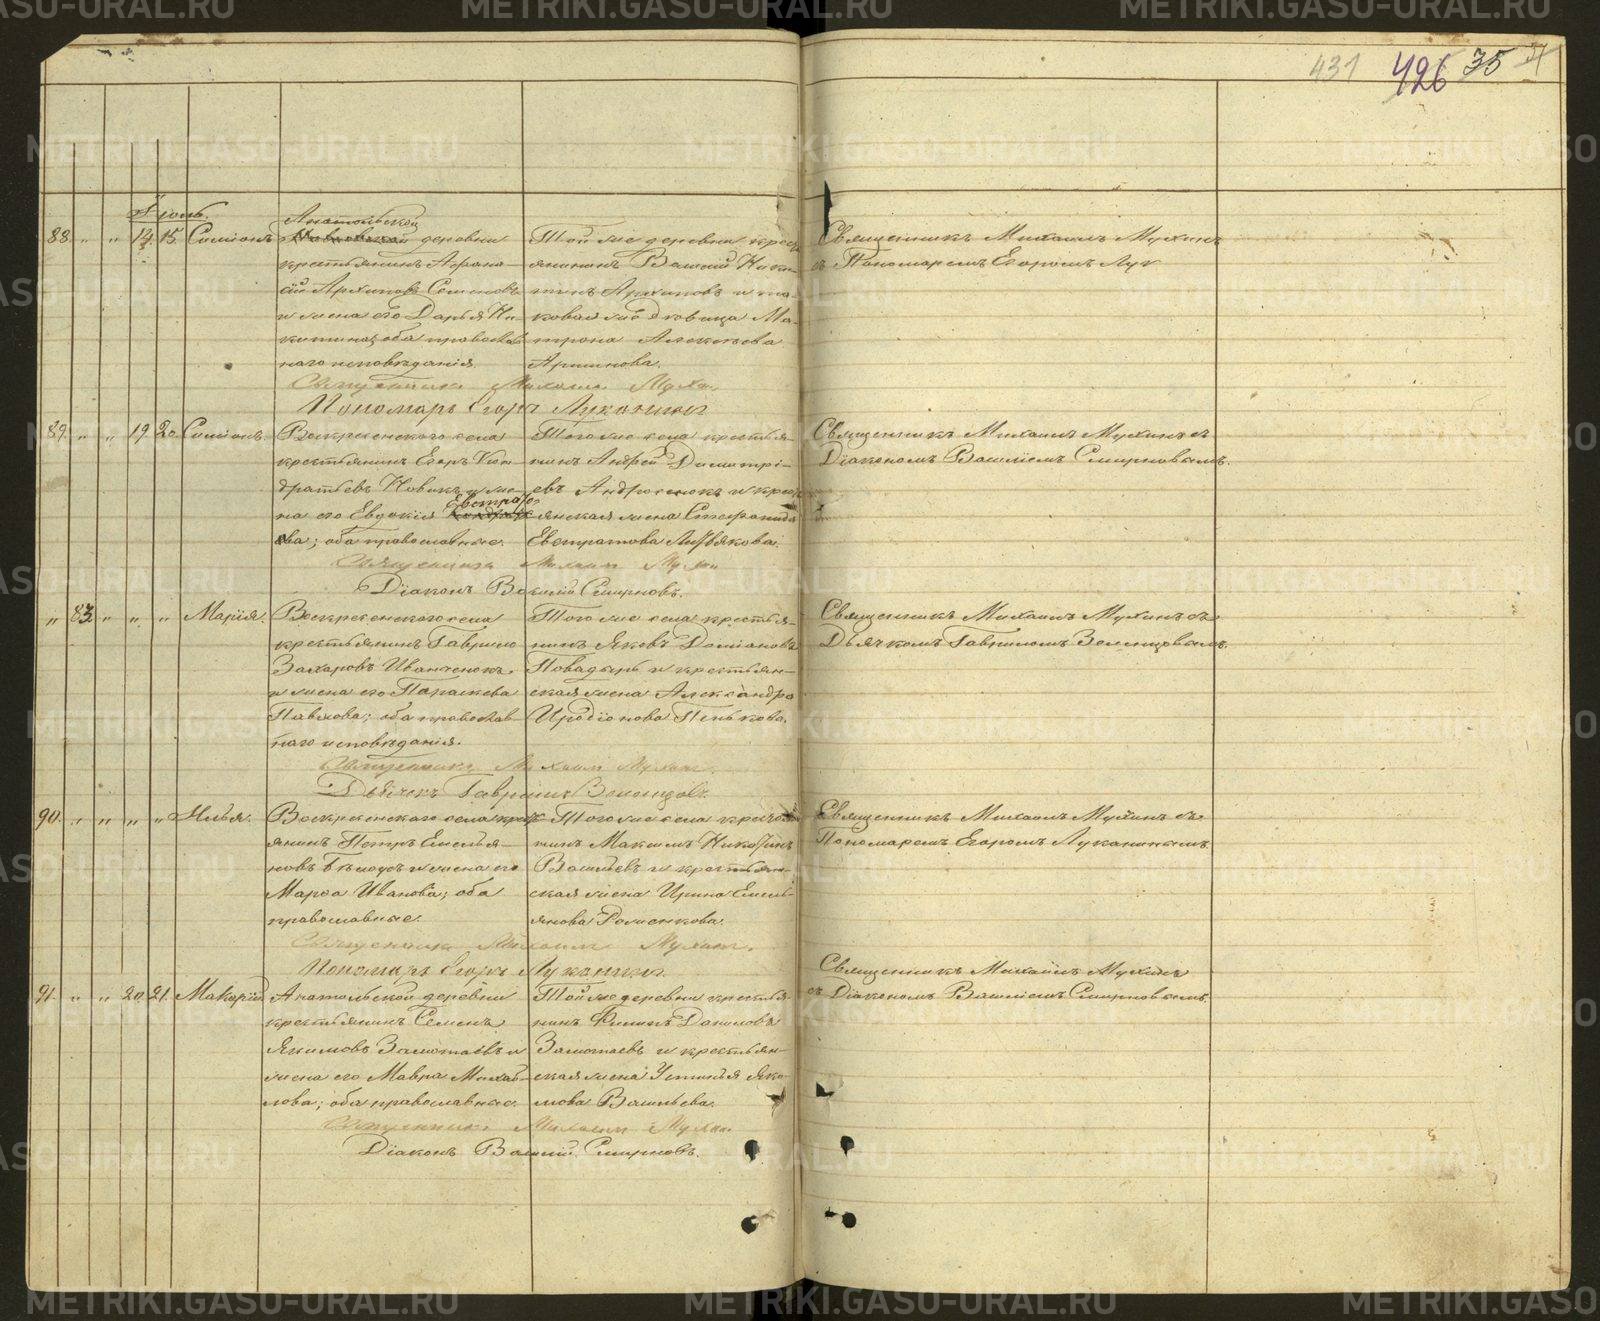 METRIKI.GASU-URAL.RU
431 426 35
Іюль.
Анатольской
88. " " 14. 15. Симіонъ деревни
крестьянинъ
Архиповъ Семеновъ
и жена его Дарья Ни-
китина; оба православ
наго исповѣданія.
Той же деревни крест
янинъ Василій Ники-
тинъ Архиповъ и та-
ковая же вдовица Ма-
трона Алексѣева
Архипова.
Священникъ Михаилъ Мухинъ
съ Пономаремъ Егоромъ Лук
Священникъ Михаилъ Мухин
Пономарь Егоръ Луканинъ
89. " " 19. 20. Симіонъ. Воскресенскаго села
крестьянинъ Егоръ Кон-
дратьевъ Новикъ и же-
на его Евдокія Евтрафо
ова; оба православные.
Того же села крестья-
нинъ Андрей Димитрі-
евъ Андросенокъ и крест
янская жена Стефанида
Евстратова
Священникъ Михаилъ Мухинъ съ
Діакономъ Василіемъ Смирновымъ.
Священникъ Михаилъ Мухин
Діаконъ Василій Смирновъ.
" 83. " " " Марія. Воскресенскаго села
крестьянинъ Гаврило
Захаровъ Иванченокъ
и жена его Параскева
Павлова; оба православ-
наго исповѣданія.
Того же села крестья-
нинъ Яковъ Даміановъ
Поводырь и крестьян-
ская жена Александра
Иродіонова Пенькова.
Священникъ Михаилъ Мухинъ съ
Дьячкомъ Гавріиломъ Зеленцовымъ.
Священникъ Михаилъ Мухин
Дьячекъ Гавріилъ Зеленцовъ.
90. " " " " Илья. Воскресенскаго села крест
янинъ Петръ Емелья-
новъ Бѣлоусъ и жена его
Марѳа Иванова; оба
православные.
Того же села крестья
нинъ Максимъ
Васильевъ и крестьян-
ская жена Ирина Емель-
янова Роменкова.
Священникъ Михаилъ Мухинъ съ
Пономаремъ Егоромъ Луканинымъ.
Священникъ Михаилъ Мухин.
Пономарь Егоръ Луканинъ.
91. " " 20. 21. Макарій Анатольской деревни
крестьянинъ Семенъ
Якимовъ Замотаевъ и
жена его Мавра Михай-
лова; оба православные.
Той же деревни крестья-
нинъ Филипъ Даниловъ
Замотаевъ и крестьян-
ская жена Устинья Яки-
мова Васильева.
Священникъ Михаилъ Мухинъ
съ Діакономъ Василіемъ Смирновымъ.
Священникъ Михаилъ Мухин
Діаконъ Василій Смирновъ.